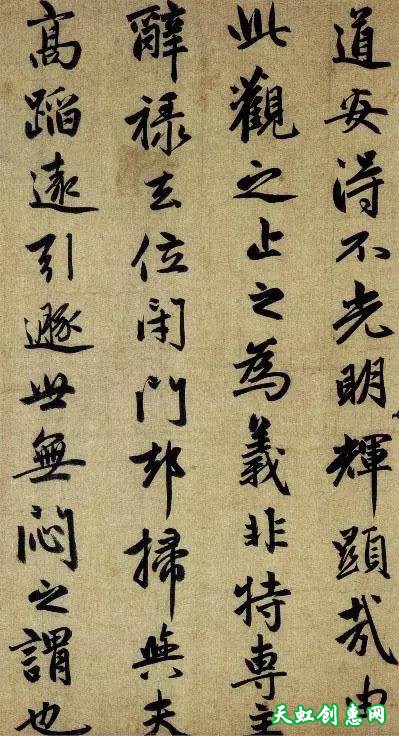 道安得不光明輝顯哉由
此觀之止之為義非特專主
辭祿去位閉門却掃與夫
高蹈遠引遯世無悶之謂也
天虹创惠网